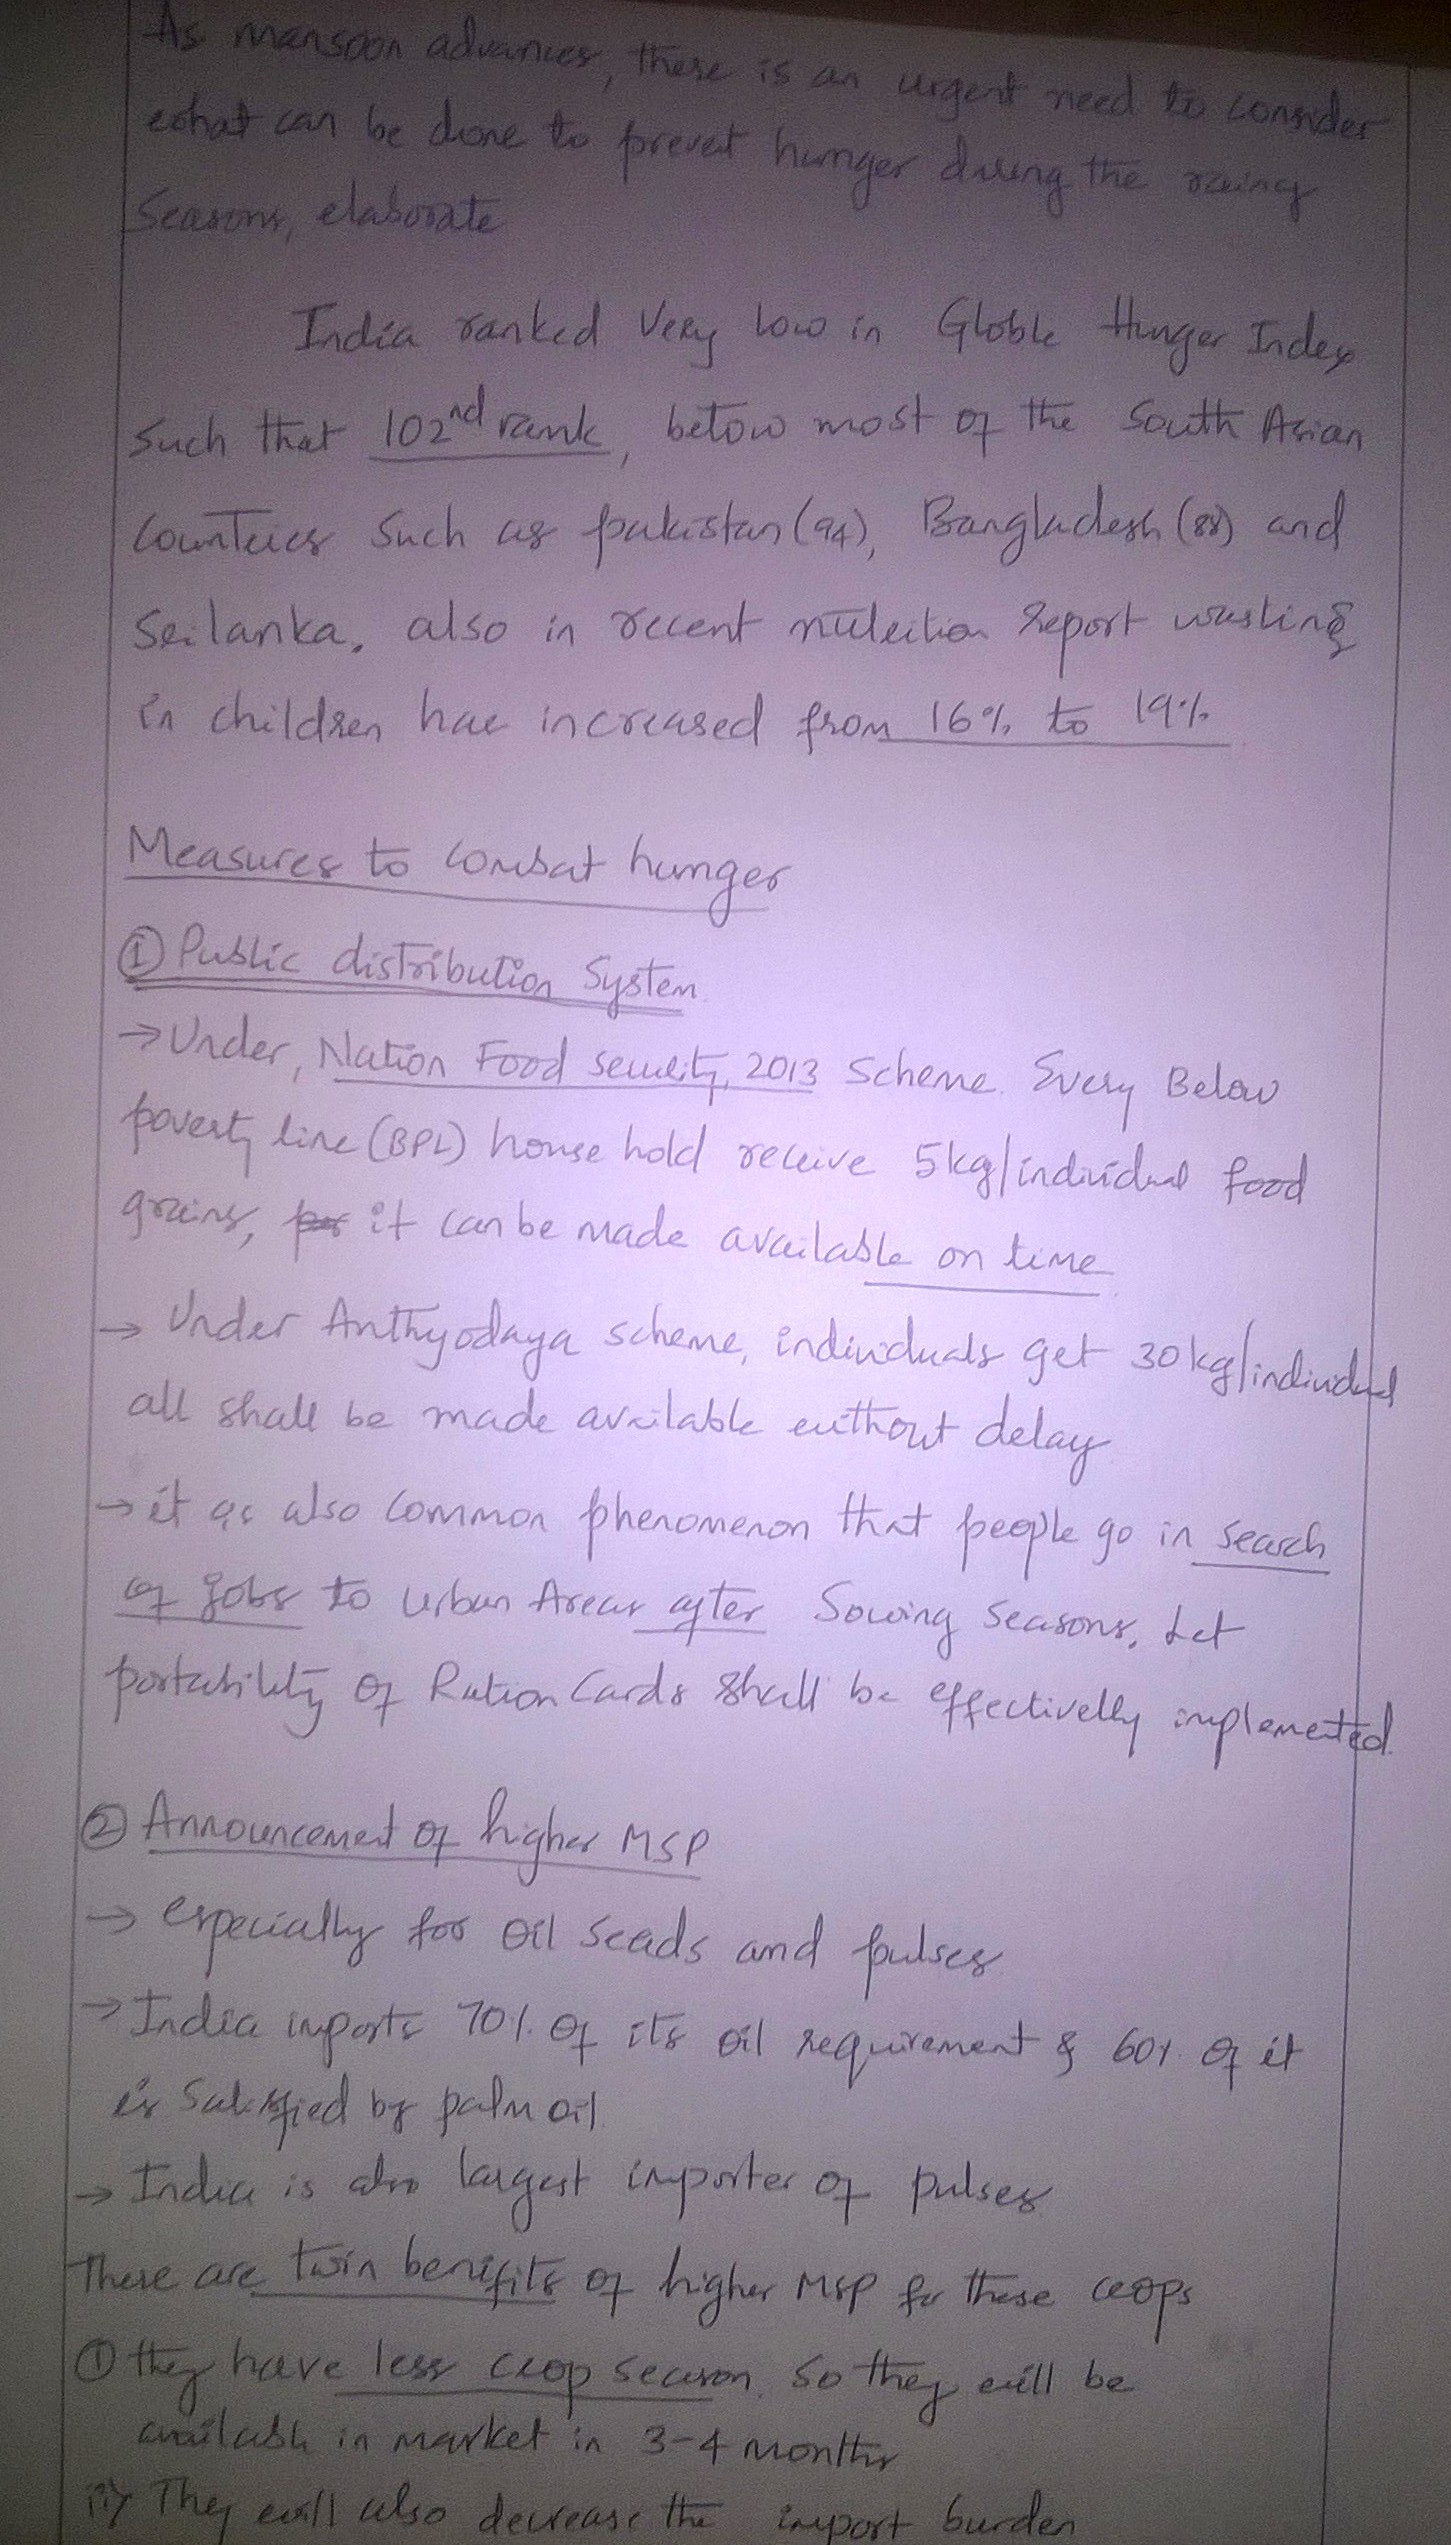 As mansoon advances, there is an urgent need to consider
what can be done to prevet hunger during the rainy
Seasons, elaborate
India ranked Very low in Globle Hunger Index
Such that 102nd rank, below most of the South Asian
Countries Such as pakistan (94), Bangladesh (88) and
Srilanka, also in recent nutrition report wasting
in children has increased from 16% to 19%
Measures to combat hunger
① Public distribution System
→ Under, Nation Food security, 2013 Scheme. Every Below
poverty line (BPL) house hold receive 5kg/individual food
grains, it can be made available on time
→ Under Anthyodaya scheme, individuals get 30kg/individual
all shall be made available without delay
→ it is also common phenomenon that people go in search
of jobs to urban Areas after Sowing Seasons, Let
portability of Ration Cards shall be effectivelly implemented.
② Announcement of higher MSP
→ especially for oil seads and pulses
→ India imports 70% of its oil requirement & 60% of it
is Satisfied by palm oil
→ India is also largest importer of pulses
There are twin benifits of higher MSP for these crops
① they have less crop season. So they will be
available in market in 3-4 months
ii) They will also decrease the import burden